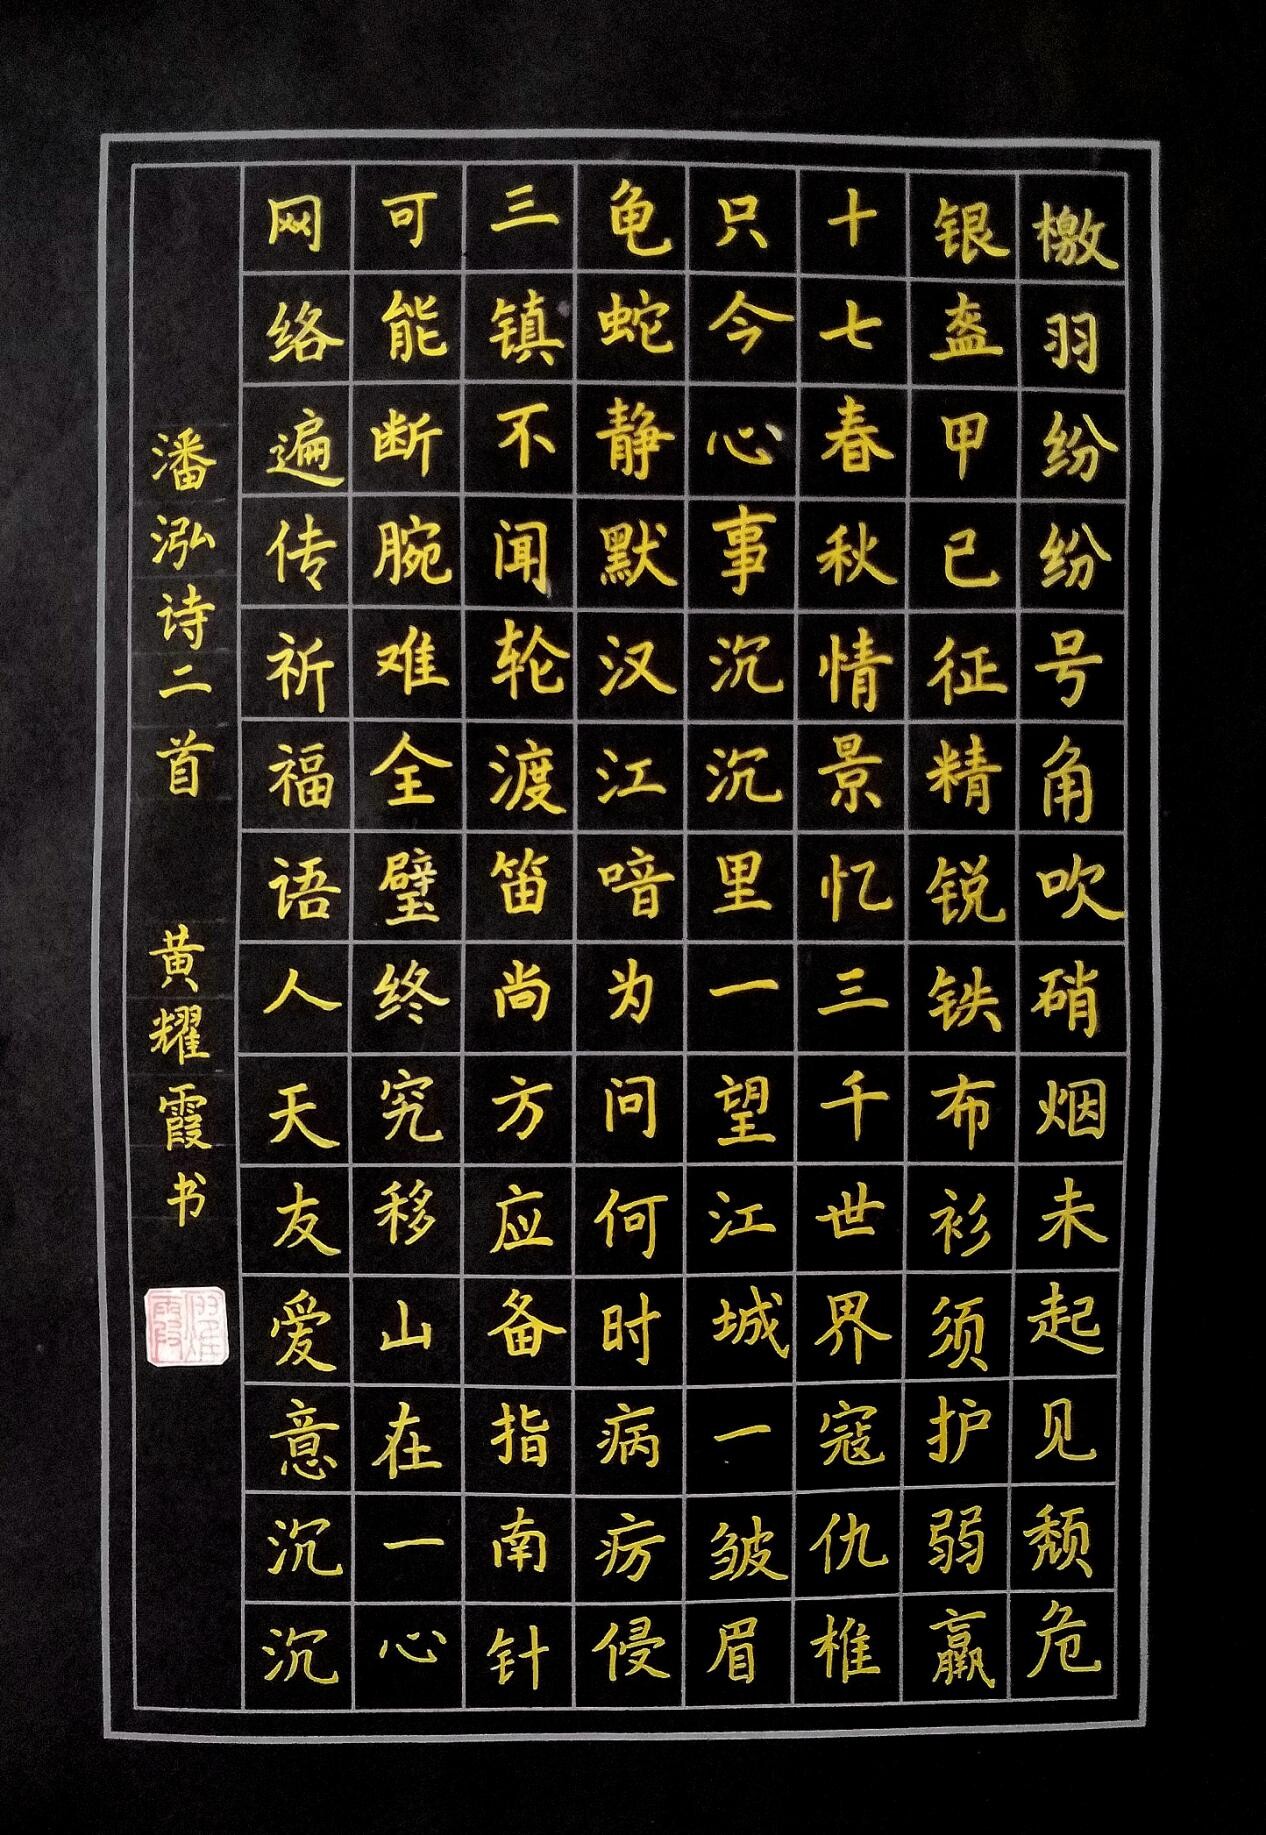 檄羽纷纷号角吹硝烟未起见颓危
银盔甲已征精锐铁布衫须护弱羸
十七春秋情景忆三千世界寇仇椎
只今心事沉沉里一望江城一皱眉
龟蛇静默汉江喑为问何时病疠侵
三镇不闻轮渡笛尚方应备指南针
可能断腕难全璧终究移山在一心
网络遍传祈福语人天友爱意沉沉
潘泓诗二首 黄耀霞书
耀霞